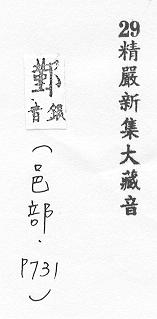 29精嚴新集大藏音
鄞
銀音
（邑部．P731）